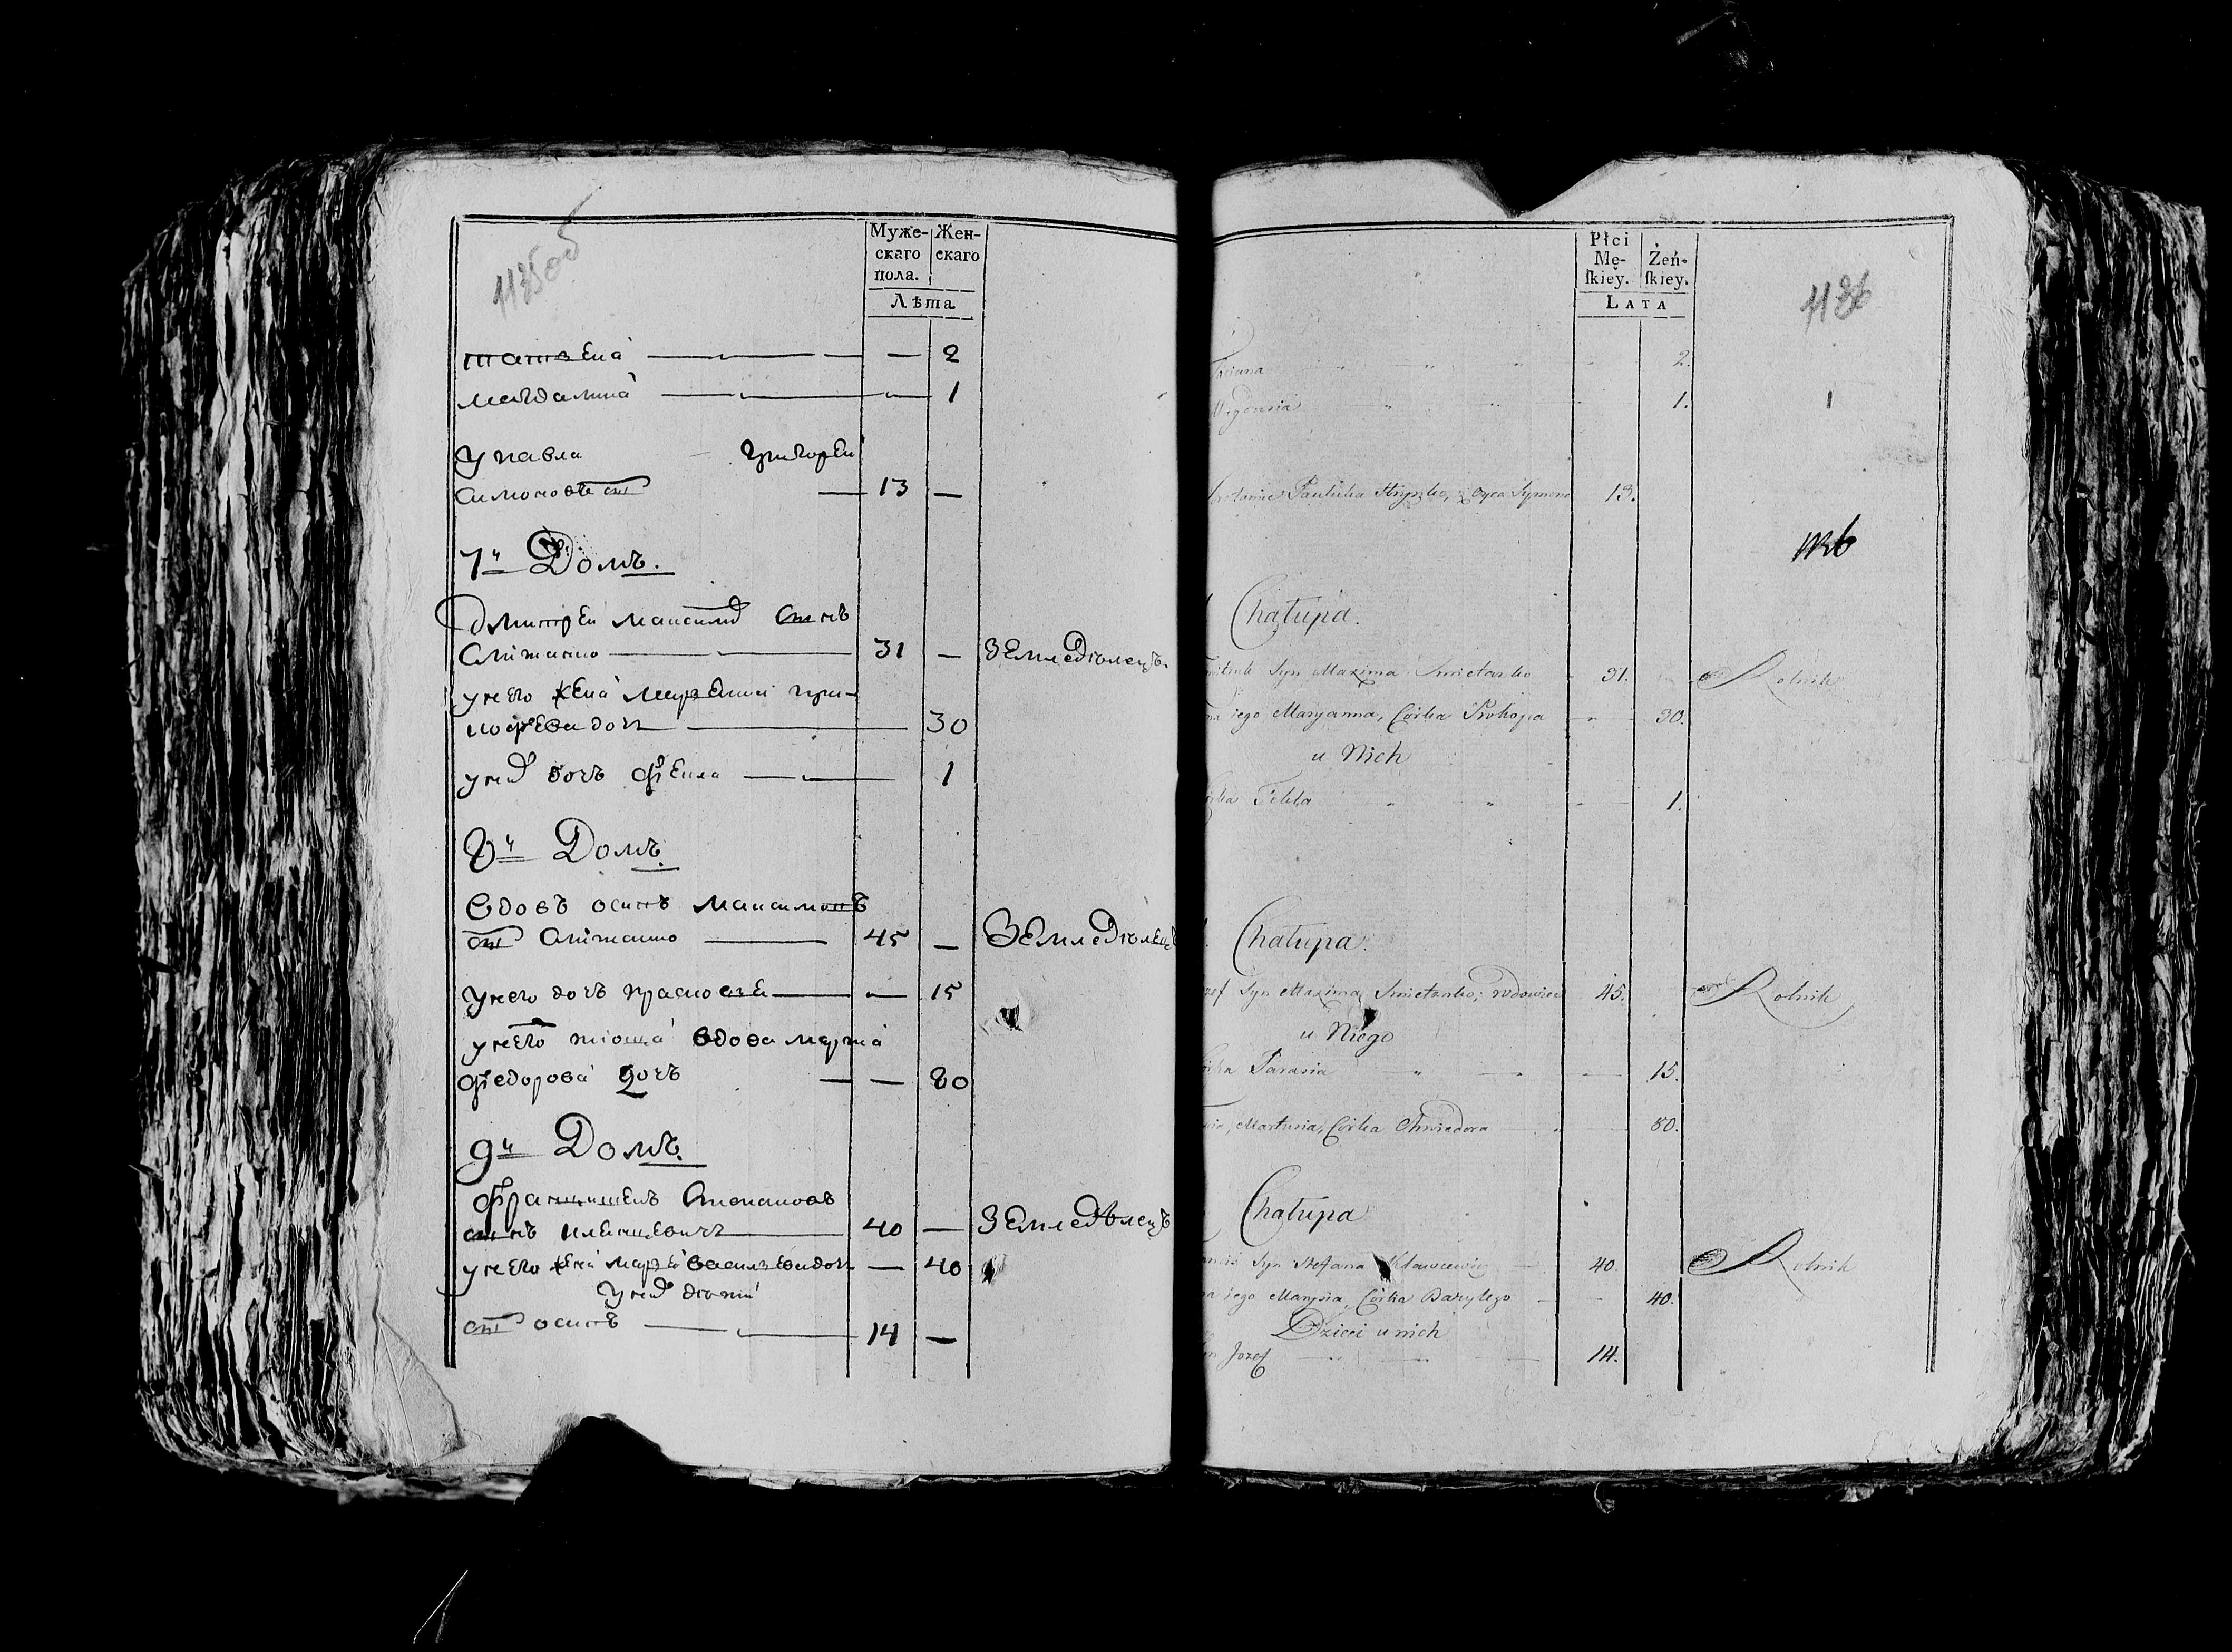 1135об
Муже- Жен-
скаго скаго
пола.
Лѣта
татьяна — — 2
магдалина — — 1
у павла григорей
симоновъ сынъ — 13 —
7й Домъ.
дмитрей максимов сынъ
смѣтанко — 31 — земледѣлецъ.
у него жена марьяна
дочь — 30
у них дочь фекла — 1
8й Домъ.
вдовъ осипъ максимовъ
сынъ смѣтанко — 45 — земледѣлецъ
у него дочь — — 15
у него тіоща вдова марта
федорова дочь — — 80
9й Домъ.
францишекъ степановъ
сынъ — 40 — земледѣлецъ
у него жена марья васильева дочь — 40
у них дѣти
сынъ осипъ — 14 —
Płci
Mę- Żeń-
ſkiey. ſkiey.
LATA
1136
2.
1.
Pawluka Hryszko, oyca Symona 13.
1136
Chałupa.
Syn Maxima Smietanko 31. Rolnik
iego Maryanna, Córka Prokopa — 30.
u Nich
Tekla — 1.
Chałupa.
Syn Maxima Smietanko, wdowiec 45. Rolnik
u Niego
Parasia — 15.
Martusia, Córka Chwiedora — 80.
Chałupa
Syn Stefana 40. Rolnik
iego Marysia, Córka Bazylego — 40.
Dzieci u nich
Jozef — 14.